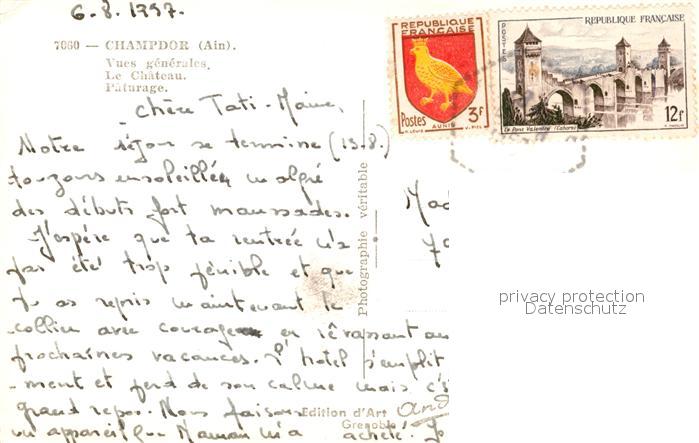 6.8.1957.
7060 — CHAMPDOR (Ain).
Vues générales.
Le Château.
Pâturage.
REPUBLIQUE FRANÇAISE
Postes 3f
AUNIS
POSTES
REPUBLIQUE FRANÇAISE
Le Pont Valentré (Cahors)
12f
Chère Tati-
Notre séjour se termine (13.8.)
toujours ensoleillé, malgré
des débuts fort maussades.
J'espère que ta rentrée n'a
pas été trop pénible et que
tu as repris maintenant le
collier avec courage en rêvassant au
prochaines vacances. L'hotel s'emplit
-ment et perd de son calme mais c'es
grand repos. Nous faison
un appareil que Maman m'a acheté. J
Photographie véritable
Edition d'Art
Grenoble
privacy protection
Datenschutz